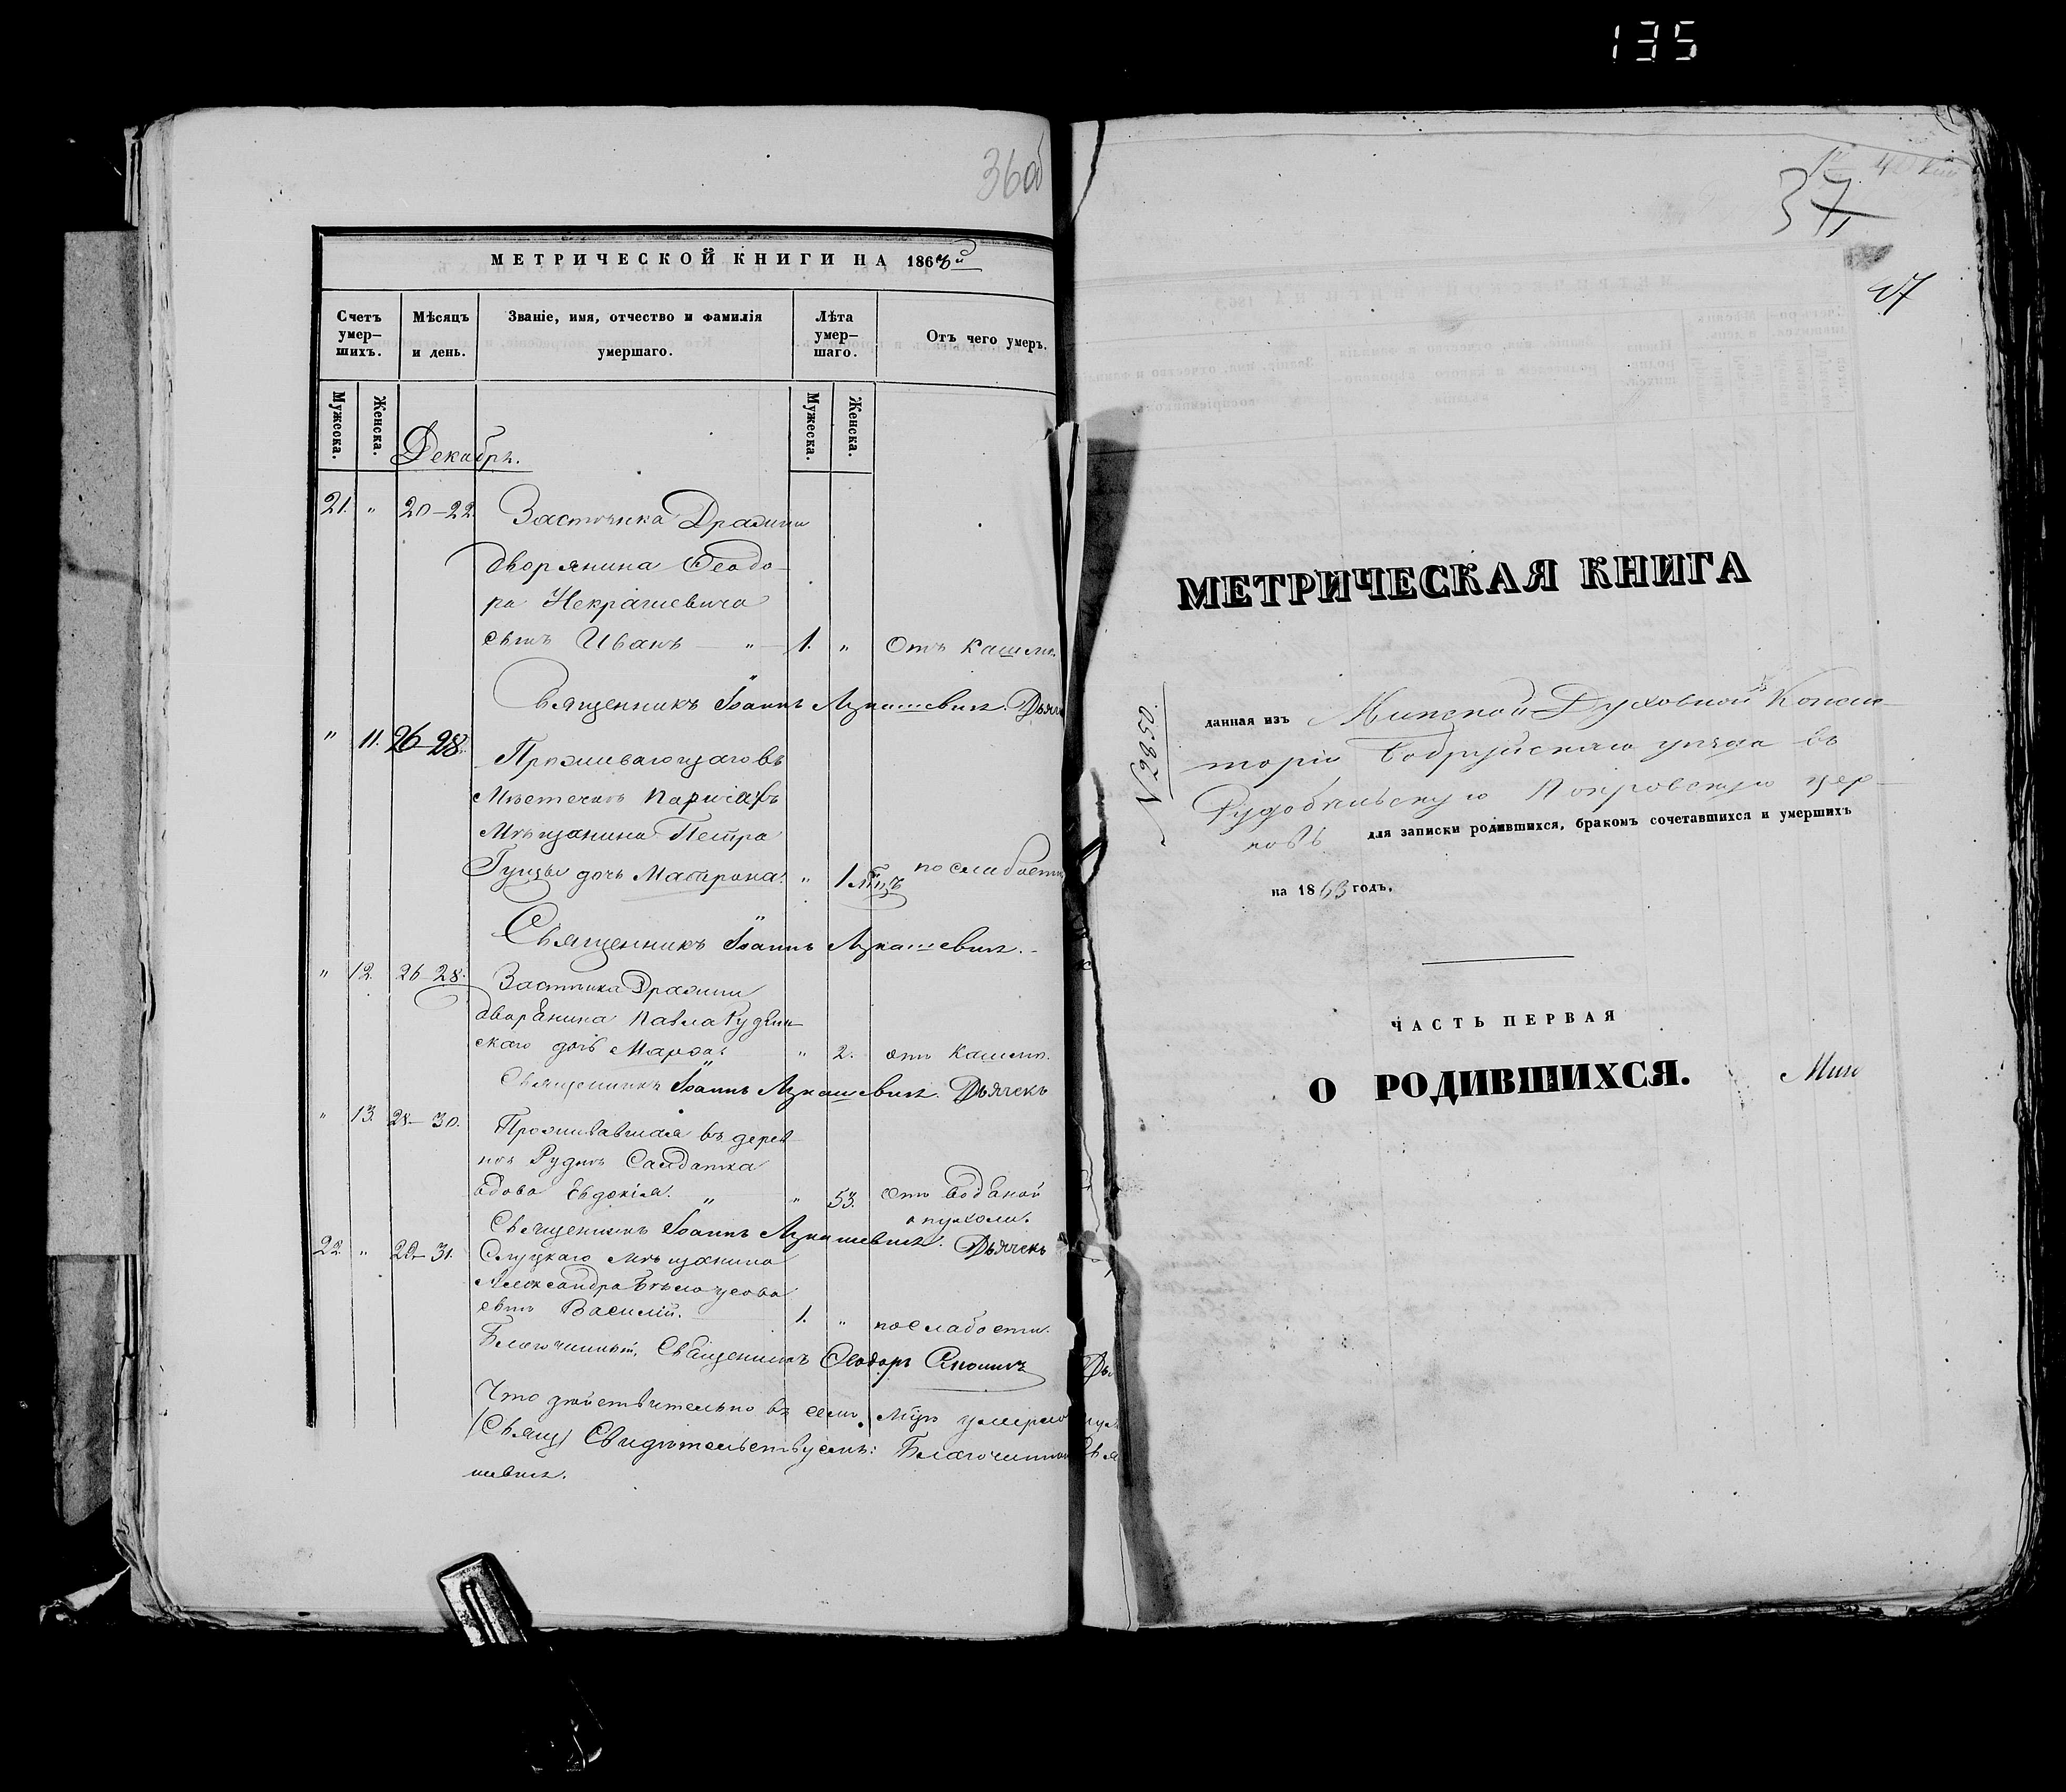 135
36об
МЕТРИЧЕСКОЙ КНИГИ НА 1863й
Счетъ умер-шихъ.
Мѣсяцъ и день.
Званіе, имя, отчество и фамилія умершаго.
Лѣта умер-шаго.
Отъ чего умеръ.
Мужеска.
Женска.
Мужеска.
Женска.
Декабрь.
21. " 20–22. Застѣнка Дражни
дворянина Ѳеодо-
ра Некрашевича
сынъ Иванъ — " — 1. " Отъ кашлю.
Священникъ Іоаннъ Лукашевичъ. Дьяч
" 11. 26–28. Проживающаго въ
Мѣстечкѣ Паричахъ
Мѣщанина Петра
дочь Матрона. " 1 мцъ по слабости
Священникъ Іоаннъ Лукашевичъ.
" 12. 26–28. Застѣнка Дражни
дворянина Павла Рудзин-
скаго дочь Марѳа. " 2. отъ кашлю.
Священникъ Іоаннъ Лукашевичъ. Дьячекъ
" 13. 28–30. Проживавшая въ дерев-
нѣ Руднѣ Солдатка
вдова Евдокія. " " 53. Отъ водяной
опухоли.
Священникъ Іоаннъ Лукашевичъ. Дьячекъ
22. " 29–31. Слуцкаго мѣщанина
Александра Бѣлоусова
сынъ Василій. 1. " по слабости.
Благочинный, Священникъ Ѳеодоръ Дь
Что дѣйствительно въ семъ умерло
Свидѣтельствуемъ: Благочинный Свя
шевичъ.
37
МЕТРИЧЕСКАЯ КНИГА
данная изъ Минской Духовной Консис-
торіи Бобруйскаго уѣзда въ
Рудобѣльскую Покровскую цер-
ковь для записки родившихся, бракомъ сочетавшихся и умершихъ
на 1863 годъ.
ЧАСТЬ ПЕРВАЯ
О РОДИВШИХСЯ.